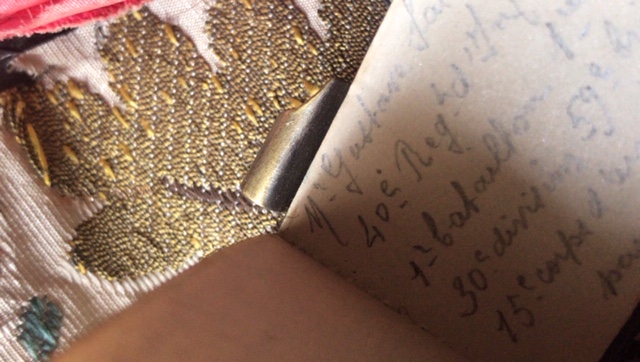 Mr Gustave
40e Reg d'Inf
1r bataillon 59e
30e division
15e corps d'